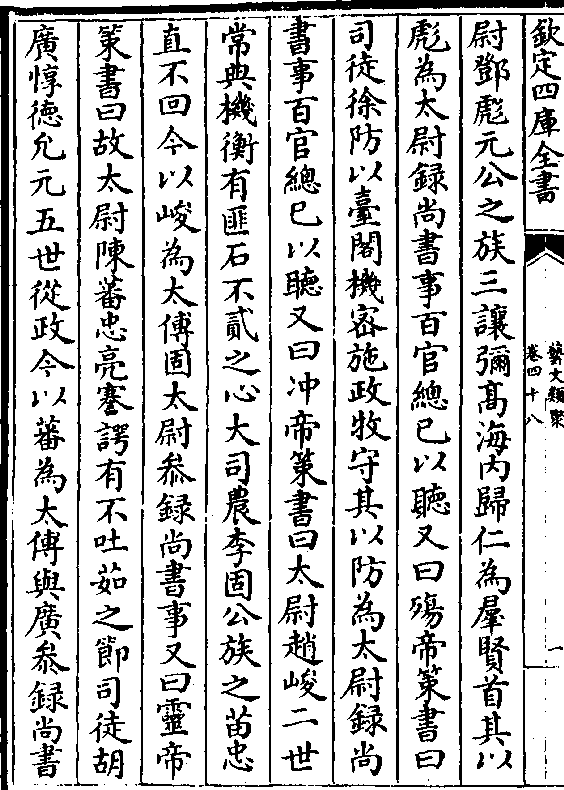 欽定四庫全書
藝文類聚
卷四十八
一
尉鄧彪元公之族三讓彌髙海内歸仁為羣賢首其以
彪為太尉録尚書事百官總已以聽又曰殤帝策書曰
司徒徐防以臺閣機密施政牧守其以防為太尉録尚
書事百官總已以聽又曰冲帝策書曰太尉趙峻二世
常典機衡有匪石不貳之心大司農李固公族之苗忠
直不回今以峻為太傅固太尉叅録尚書事又曰靈帝
策書曰故太尉陳蕃忠亮蹇諤有不吐茹之節司徒胡
廣惇德允元五世從政今以蕃為太傅與廣叅録尚書